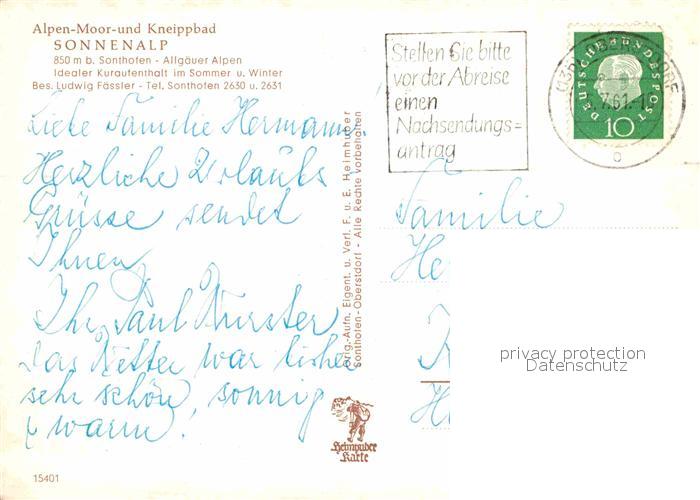 Alpen-Moor-und Kneippbad
SONNENALP
850 m b. Sonthofen - Allgäuer Alpen
Idealer Kuraufenthalt im Sommer u. Winter
Bes. Ludwig Fässler - Tel. Sonthofen 2630 u. 2631
Liebe Familie Hermann.
Herzliche Urlaubs
Grüsse sendet
Ihnen
Ihr Paul Wurster
das Wetter war bisher
sehr schön, sonnig
u warm.
15401
Orig.-Aufn. Eigent. u. Verl. F. u. E. Heimhuber
Sonthofen-Oberstdorf - Alle Rechte vorbehalten
Heimhuber
Karte
Stellen Sie bitte
vor der Abreise
einen
Nachsendungs=
antrag
DEUTSCHE BUNDESPOST
10
7.61.
Familie
He
H
privacy protection
Datenschutz